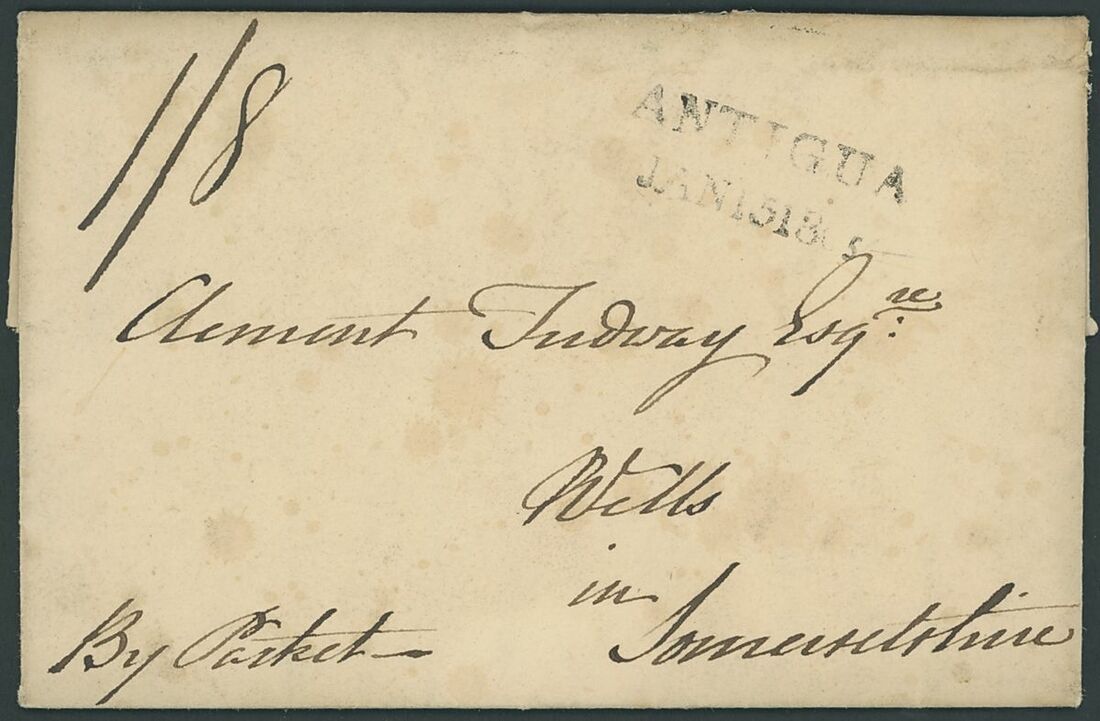 1/8
ANTIGUA
JAN 15 18
Clement Tudway Esqre:
Wells
in
Somersetshire
By Packet